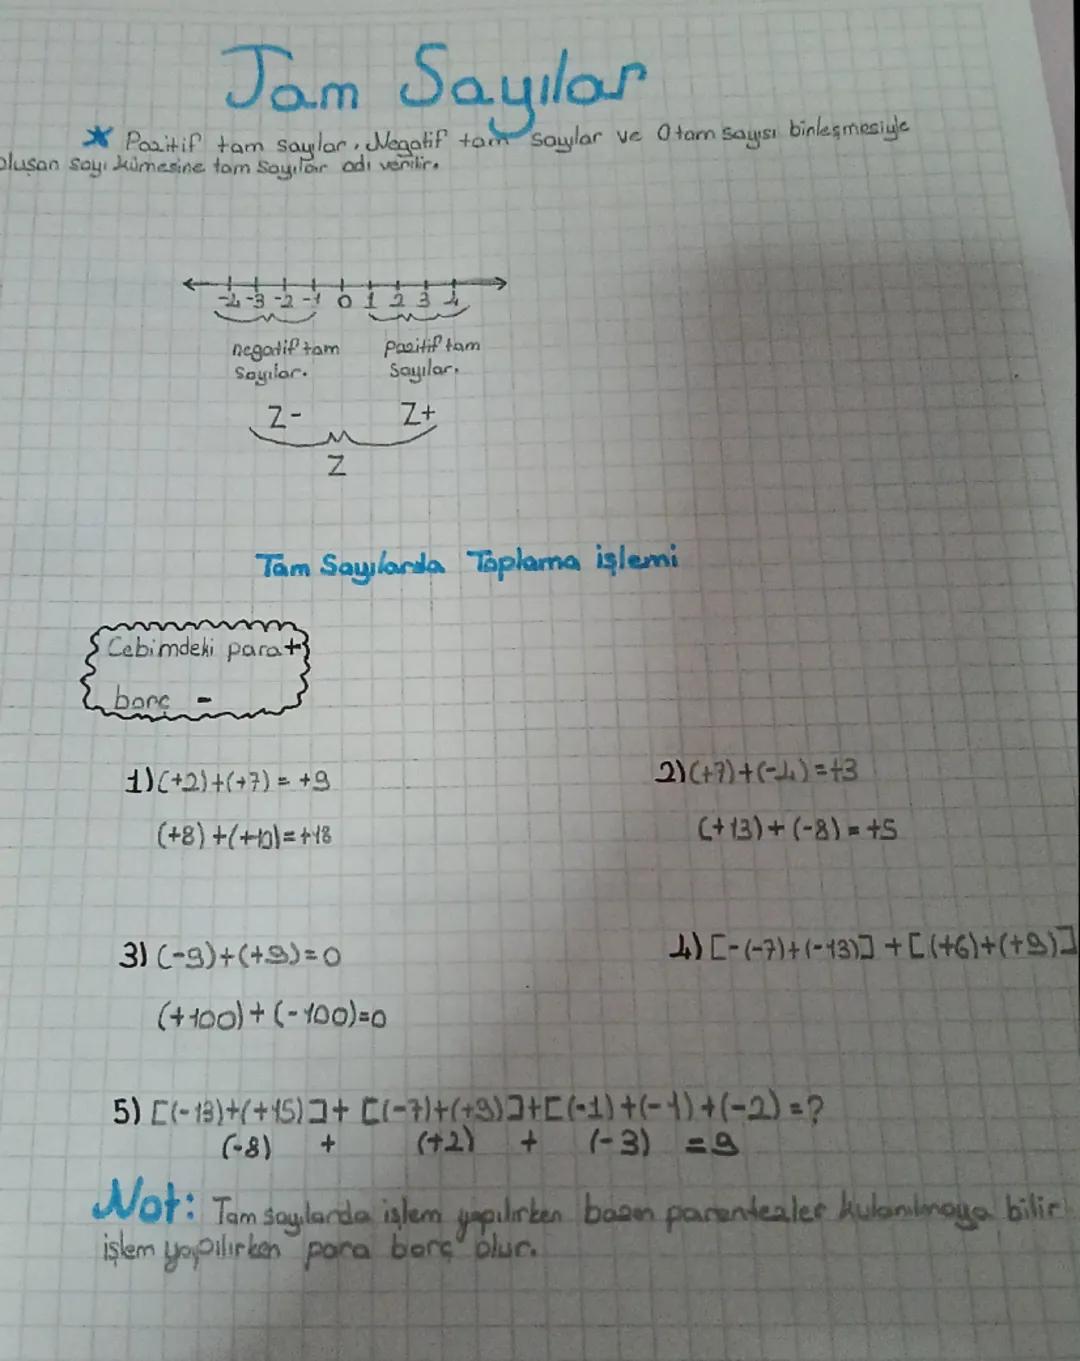 Tam Sayılar
* Pozitif tam sayılar, Negatif tam sayılar ve 0 tam sayısı binleşmesiyle
oluşan sayı kümesine tam sayılar adı verilir.
-4 -3 -2 -1 0 1 2 3 4
negatif tam pozitif tam
sayılar. sayılar.
Z- Z+
Z
Tam Sayılarda Toplama işlemi
Cebimdeki para +
borç -
1) (+2)+(+7) = +9 2) (+7)+(-4) = +3
(+8)+(+10) = +18 (+13)+(-8) = +5
3) (-9)+(+9) = 0 4) [-(-7)+(-13)] + [(+6)+(+9)]
(+100)+(-100)=0
5) [(-13)+(+15)]+ [(-7)+(+9)]+[(-1)+(-1)+(-2) =?
(-8) + (+2) + (-3) = 9
Not: Tam sayılarda işlem yapılırken bazen parentezler kulanılmaya bilir
işlem yapılırken para borç olur.